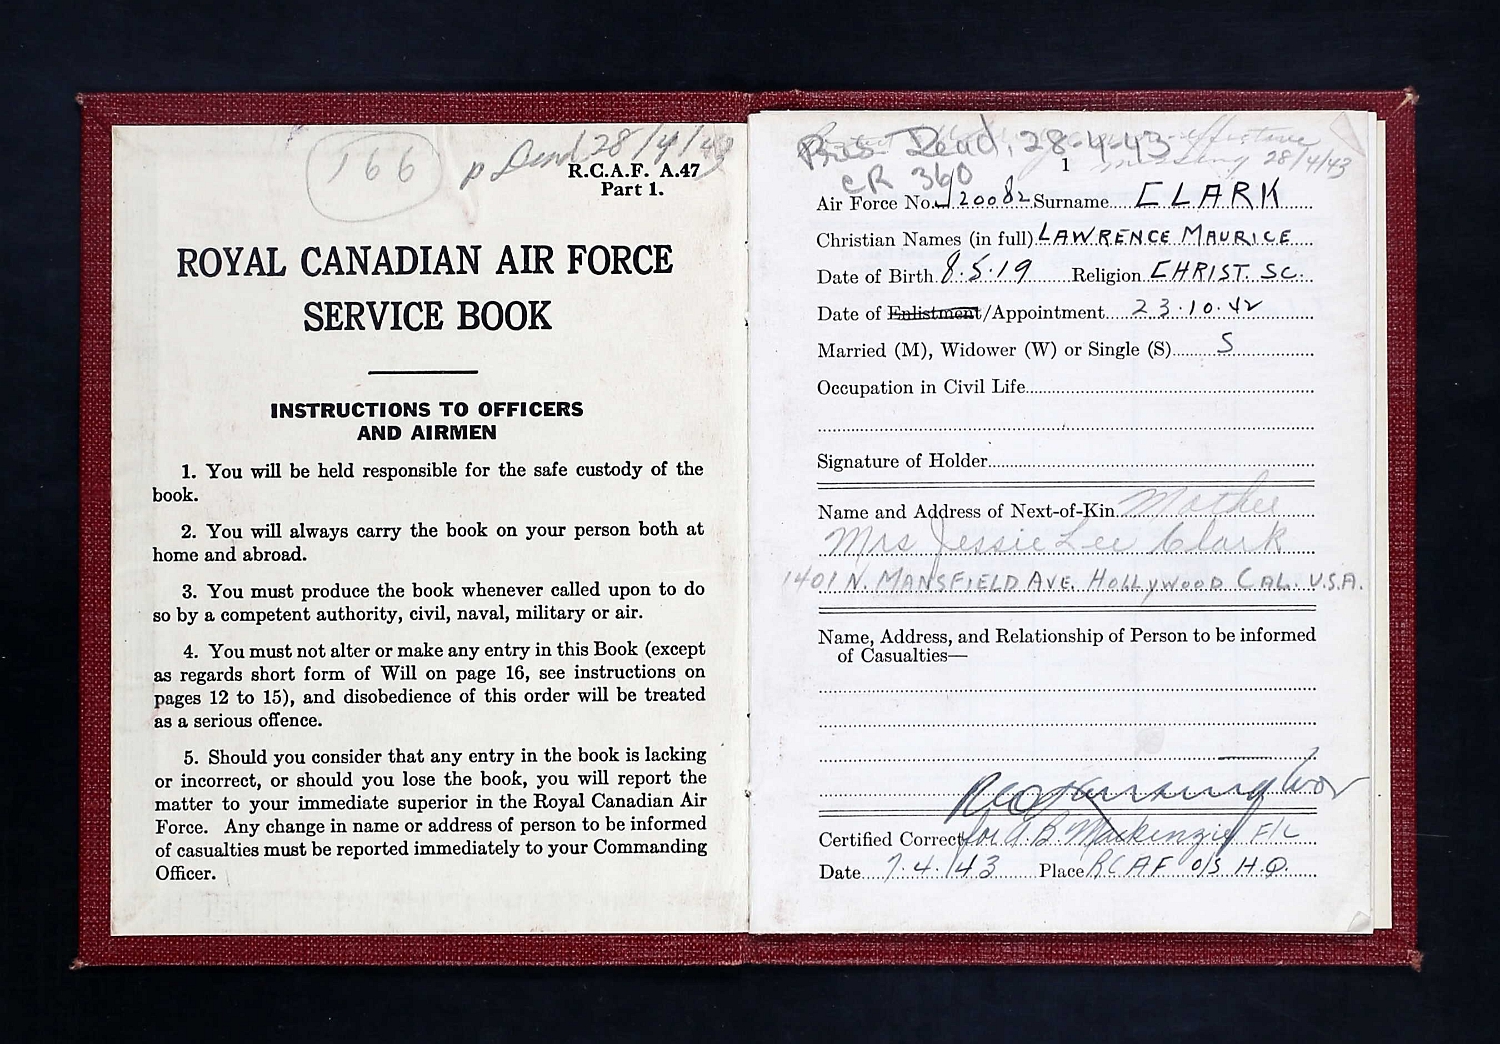 166
p Dead 28/4/43
R.C.A.F. A.47
Part 1.
ROYAL CANADIAN AIR FORCE
SERVICE BOOK
INSTRUCTIONS TO OFFICERS
AND AIRMEN
1. You will be held responsible for the safe custody of the
book.
2. You will always carry the book on your person both at
home and abroad.
3. You must produce the book whenever called upon to do
so by a competent authority, civil, naval, military or air.
4. You must not alter or make any entry in this Book (except
as regards short form of Will on page 16, see instructions on
pages 12 to 15), and disobedience of this order will be treated
as a serious offence.
5. Should you consider that any entry in the book is lacking
or incorrect, or should you lose the book, you will report the
matter to your immediate superior in the Royal Canadian Air
Force. Any change in name or address of person to be informed
of casualties must be reported immediately to your Commanding
Officer.
Pres Dead, 28-4-43
missing 28/4/43
1
CR 360
Air Force No. J20082 Surname CLARK
Christian Names (in full) LAWRENCE MAURICE
Date of Birth 8.5.19 Religion CHRIST. SC.
Date of Enlistment/Appointment 23.10.42
Married (M), Widower (W) or Single (S) S
Occupation in Civil Life
Signature of Holder
Name and Address of Next-of-Kin Mother
Mrs Jessie Lee Clark
1401 N. MANSFIELD AVE. HOLLYWOOD CAL. U.S.A.
Name, Address, and Relationship of Person to be informed
of Casualties—
Certified Correct for A.B. Mackenzie F/L
Date 7.4.43 Place RCAF O/S H.Q.